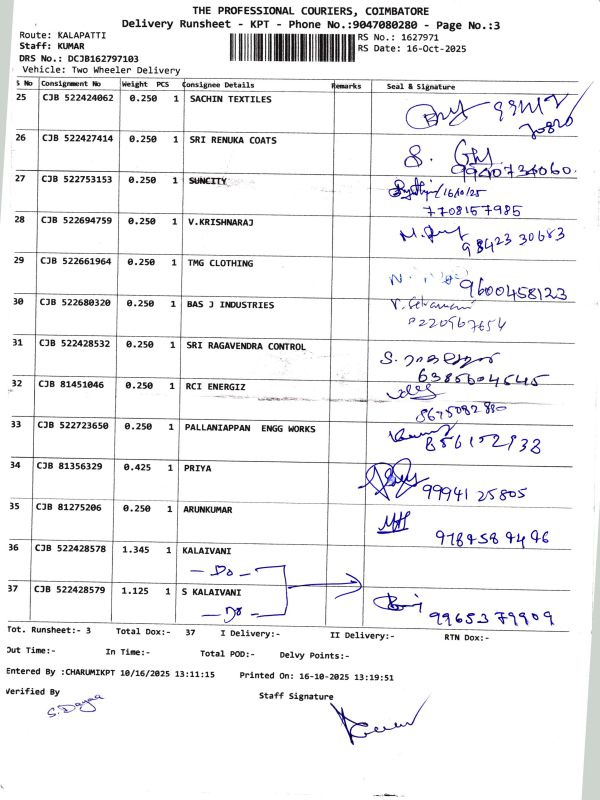 THE PROFESSIONAL COURIERS, COIMBATORE
Delivery Runsheet - KPT - Phone No.:9047080280 - Page No.:3
Route: KALAPATTI
RS No.: 1627971
Staff: KUMAR
RS Date: 16-Oct-2025
DRS No.: DCJB162797103
Vehicle: Two Wheeler Delivery
S No Consignment No Weight PCS Consignee Details Remarks Seal & Signature
25 CJB 522424062 0.250 1 SACHIN TEXTILES
26 CJB 522427414 0.250 1 SRI RENUKA COATS
9940734060.
27 CJB 522753153 0.250 1 SUNCITY
16/10/25
7708157985
28 CJB 522694759 0.250 1 V.KRISHNARAJ
98423 30683
29 CJB 522661964 0.250 1 TMG CLOTHING
9600458123
30 CJB 522680320 0.250 1 BAS J INDUSTRIES
31 CJB 522428532 0.250 1 SRI RAGAVENDRA CONTROL
32 CJB 81451046 0.250 1 RCI ENERGIZ
33 CJB 522723650 0.250 1 PALLANIAPPAN ENGG WORKS
34 CJB 81356329 0.425 1 PRIYA
99941 25805
35 CJB 81275206 0.250 1 ARUNKUMAR
36 CJB 522428578 1.345 1 KALAIVANI
- Do -
37 CJB 522428579 1.125 1 S KALAIVANI
- Do -
99653 79909
Tot. Runsheet:- 3 Total Dox:- 37 I Delivery:- II Delivery:- RTN Dox:-
Out Time:- In Time:- Total POD:- Delvy Points:-
Entered By :CHARUMIKPT 10/16/2025 13:11:15 Printed On: 16-10-2025 13:19:51
Verified By Staff Signature